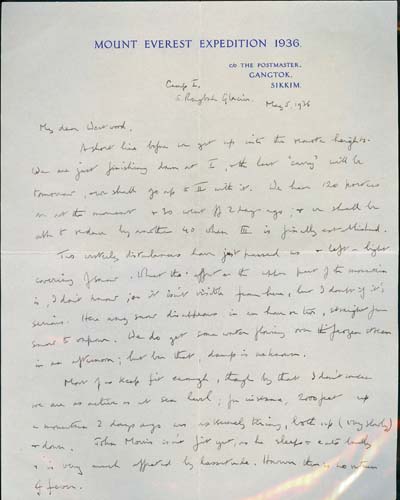 MOUNT EVEREST EXPEDITION 1936.
c/o THE POSTMASTER,
GANGTOK,
SIKKIM.
Camp I,
E Rongbuk Glacier.
May 5, 1936
My dear
A short line before we get up into the heights.
We are just finishing down at I, the last "carry" will be
tomorrow, we shall go up to II with it. We have 120 porters
on at the moment + 30 went off 2 days ago; + we shall be
able to reduce by another 40 when III is finally established.
Two westerly disturbances have just passed us + left a light
covering of snow. What the effect on the upper part of the mountain
is, I don't know for it isn't visible from here, but I doubt if it's
serious. Here any snow disappears in an hour or two, straight from
snow to vapour. We do get some water flowing over the frozen stream
in an afternoon; but for that, damp is unknown.
Most of us keep fit enough, though by that I don't mean
we are as active as at sea level; for instance, 2000 feet up
a mountain 2 days ago was extremely tiring, both up (very slowly)
+ down. John Morris isn't fit yet, as he sleeps + eats badly
+ is very much affected by However there is no return
of fever.